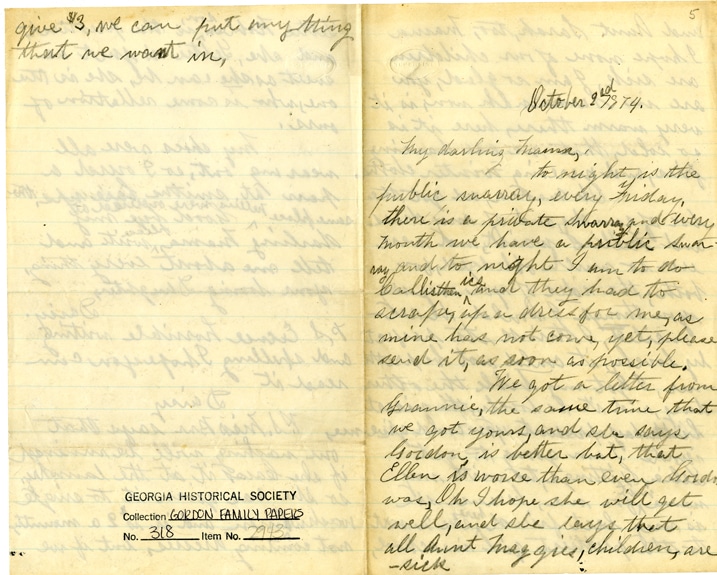 give $3, we can put anything
that we want in,
GEORGIA HISTORICAL SOCIETY
Collection GORDON FAMILY PAPERS
No. 318 Item No.
5
October 2nd 1874.
My darling Mama,
to night is the
public suarray, every Friday,
there is a private swarray and every
month we have a public swar-
ray and to night I am to do
Callisthenics and they had to
scrape, up a dress for me, as
mine has not come, yet, please
send it, as soon as possible.
We got a letter from
Grannie, the same time that
we got yours, and she says
Gordon is better but, that
Ellen is worse than even Gordon
was, Oh I hope she will get
well, and she says that
all Aunt Maggies, children, are
-sick